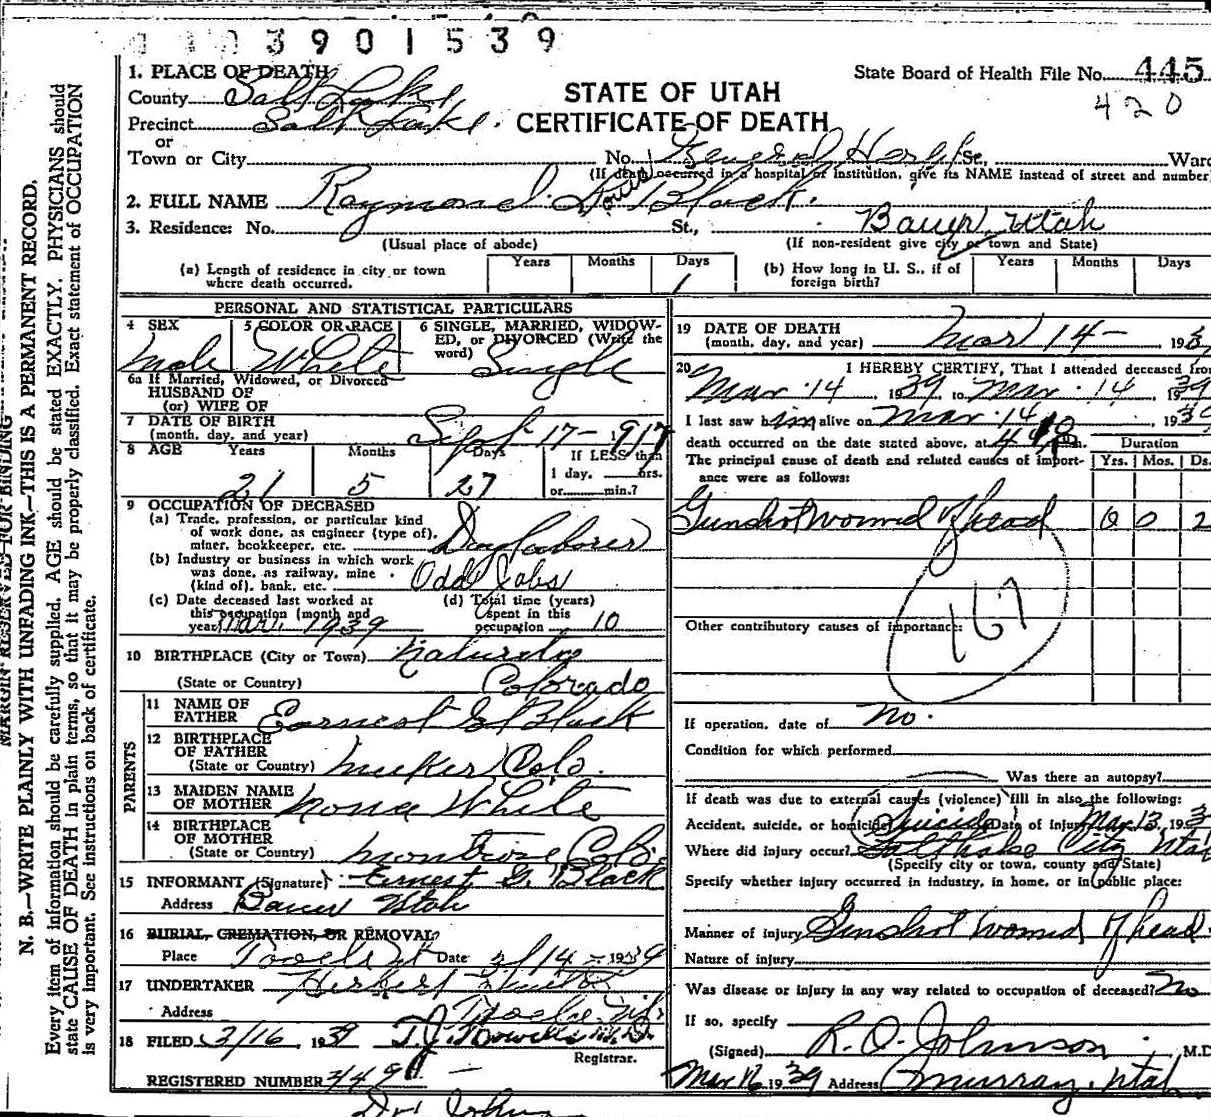 3901539
1. PLACE OF DEATH
State Board of Health File No. 445
County Salt Lake
STATE OF UTAH
420
Precinct Salt Lake.
CERTIFICATE OF DEATH
or
Town or City No. General Hosp. St., Ward
(If death occurred in a hospital or institution, give its NAME instead of street and number
2. FULL NAME Raymond Louis Black.
3. Residence: No. St., Bauer, Utah
(Usual place of abode) (If non-resident give city or town and State)
(a) Length of residence in city or town where death occurred. Years Months Days 1
(b) How long in U. S., if of foreign birth? Years Months Days
PERSONAL AND STATISTICAL PARTICULARS
4 SEX Male
5 COLOR OR RACE White
6 SINGLE, MARRIED, WIDOWED, or DIVORCED (Write the word) Single
6a If Married, Widowed, or Divorced
HUSBAND OF
(or) WIFE OF
7 DATE OF BIRTH
(month, day, and year) Sept 17 - 1917
8 AGE Years Months Days If LESS than
1 day, hrs.
21 5 27 or min.?
9 OCCUPATION OF DECEASED
(a) Trade, profession, or particular kind
of work done, as engineer (type of),
miner, bookkeeper, etc. Day Laborer
(b) Industry or business in which work
was done, as railway, mine
(kind of), bank, etc. Odd Jobs
(c) Date deceased last worked at
this occupation (month and
year) Mar. 1939
(d) Total time (years)
spent in this
occupation 10
10 BIRTHPLACE (City or Town) Naturita
(State or Country) Colorado
PARENTS
11 NAME OF
FATHER Earnest G Black
12 BIRTHPLACE
OF FATHER
(State or Country) Meeker Colo.
13 MAIDEN NAME
OF MOTHER Nona White
14 BIRTHPLACE
OF MOTHER
(State or Country) Montrose Colo.
15 INFORMANT (Signature) Ernest G. Black
Address Bauer Utah
16 BURIAL, CREMATION, OR REMOVAL?
Place Tooele Ut Date 3/14 - 1939
17 UNDERTAKER Herbert
Address Tooele Ut.
18 FILED 3/16 1939 T.J. Howells M.D.
Registrar.
REGISTERED NUMBER 449
19 DATE OF DEATH
(month, day, and year) Mar 14 - , 193
20 I HEREBY CERTIFY, That I attended deceased from
Mar. 14, 1939, to Mar. 14, 1939
I last saw him alive on Mar. 14, 1939
death occurred on the date stated above, at m.
Duration
The principal cause of death and related causes of importance were as follows:
Yrs. Mos. Ds.
Gunshot wound of head 0 0 2
167
Other contributory causes of importance:
If operation, date of no.
Condition for which performed
Was there an autopsy?
If death was due to external causes (violence) fill in also the following:
Accident, suicide, or homicide Suicide Date of Injury Mar 13, 193
Where did injury occur? Salt Lake City Utah
(Specify city or town, county and State)
Specify whether injury occurred in industry, in home, or in public place:
Manner of injury Gunshot wound of head.
Nature of injury
Was disease or injury in any way related to occupation of deceased? No
If so, specify
(Signed) R. O. Johnson M.D
Mar 16 1939 Address Murray, Utah
MARGIN RESERVED FOR BINDING
N. B.—WRITE PLAINLY WITH UNFADING INK—THIS IS A PERMANENT RECORD.
Every item of information should be carefully supplied. AGE should be stated EXACTLY. PHYSICIANS should
state CAUSE OF DEATH in plain terms, so that it may be properly classified. Exact statement of OCCUPATION
is very important. See instructions on back of certificate.